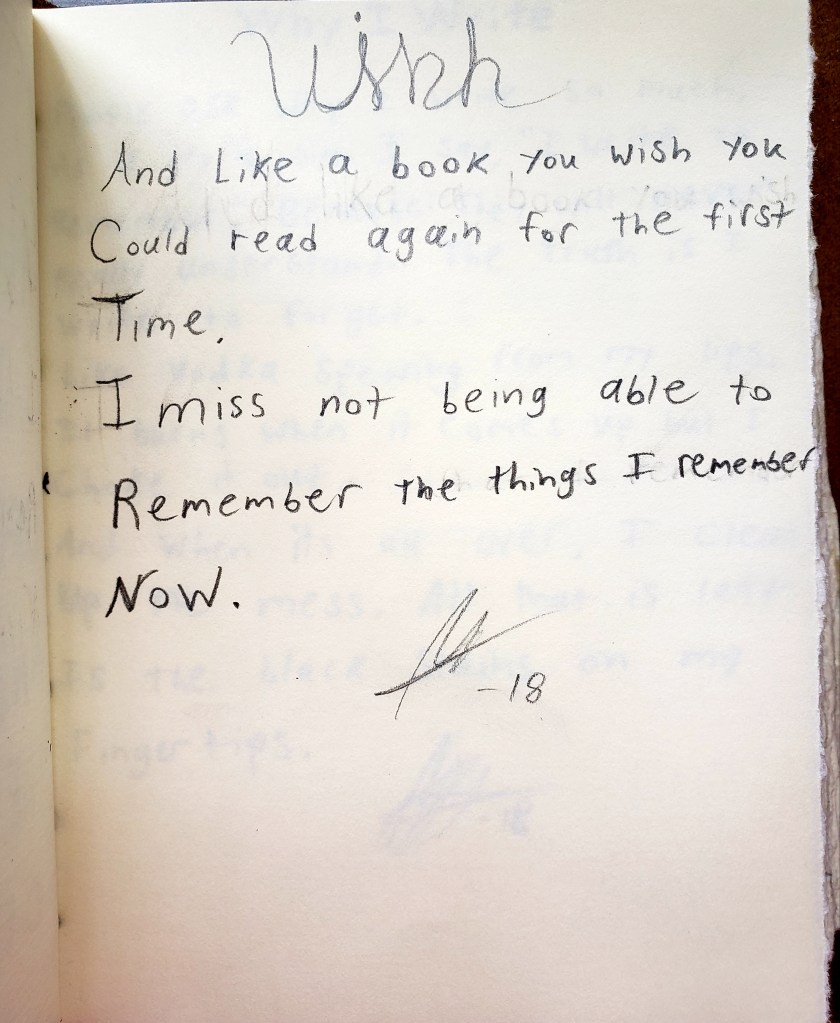 Wish
And Like a book you wish you
Could read again for the first
Time.
I miss not being able to
Remember the things I remember
Now.
-18